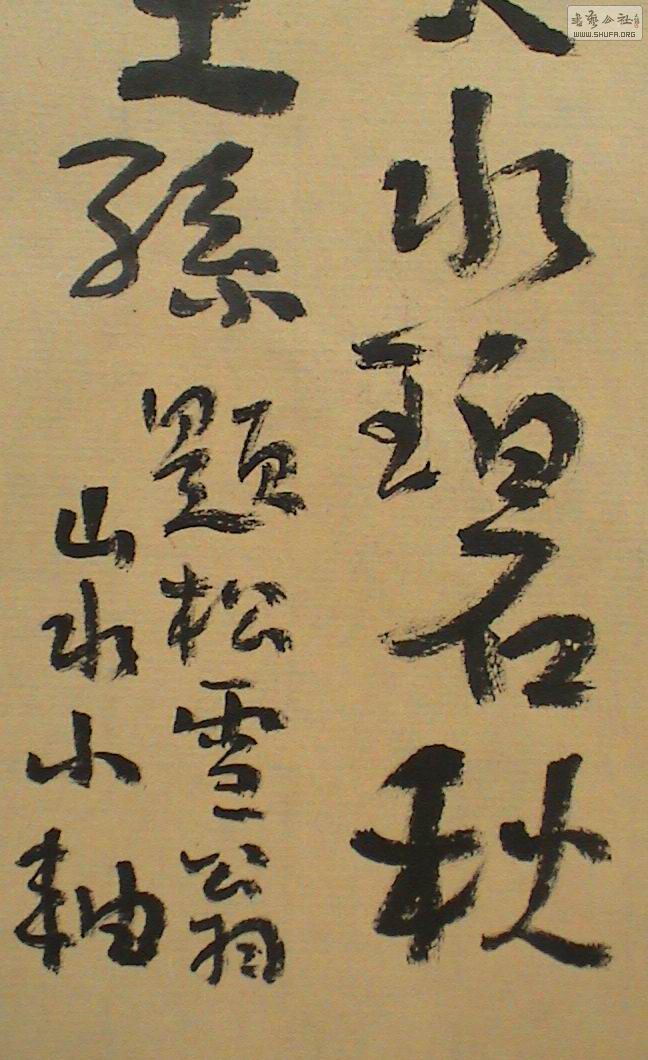 水碧秋
王孫
題松雪翁
山水小軸
書藝公社
WWW.SHUFA.ORG